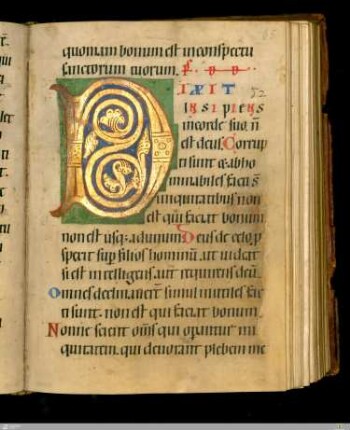 quoniam bonum est in conspectu
sanctorum tuorum.
DIXIT
Insipiens
in corde suo. n̄
est deus. Corrup
ti sunt & abho
minabiles facti s̄
in iniquitatibus. non
est qui faciat bonum.
non est usq; ad unum. Deus de celo p
spexit sup filios hominū. ut uideat
si est intelligens. aut requirens deū.
Omnes declinauert̄ simul inutiles fac
ti sunt. non est qui faciat bonum.
Nonne scient om̄s qui operantur ini
quitatem. qui deuorant plebem me